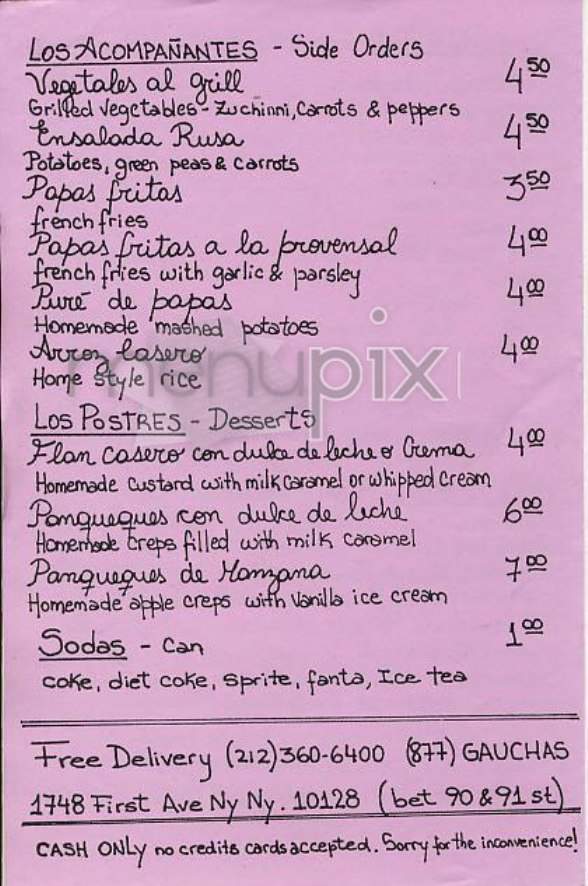 LOS ACOMPAÑANTES - Side Orders
Vegetales al grill 4.50
Grilled vegetables - Zuchinni, Carrots & peppers
Ensalada Rusa 4.50
Potatoes, green peas & carrots
Papas fritas 3.50
french fries
Papas fritas a la provensal 4.00
french fries with garlic & parsley
Puré de papas 4.00
Homemade mashed potatoes
Arroz casero 4.00
Home style rice
menupix
LOS POSTRES - Desserts
Flan casero con dulce de leche o Crema 4.00
Homemade custard with milk caramel or whipped cream
Panqueques con dulce de leche 6.00
Homemade creps filled with milk caramel
Panqueques de Manzana 7.00
Homemade apple creps with vanilla ice cream
Sodas - can 1.00
coke, diet coke, sprite, fanta, Ice tea
Free Delivery (212)360-6400 (877) GAUCHAS
1748 First Ave Ny Ny. 10128 (bet 90 & 91 st)
CASH ONLY no credits cards accepted. Sorry for the inconvenience!